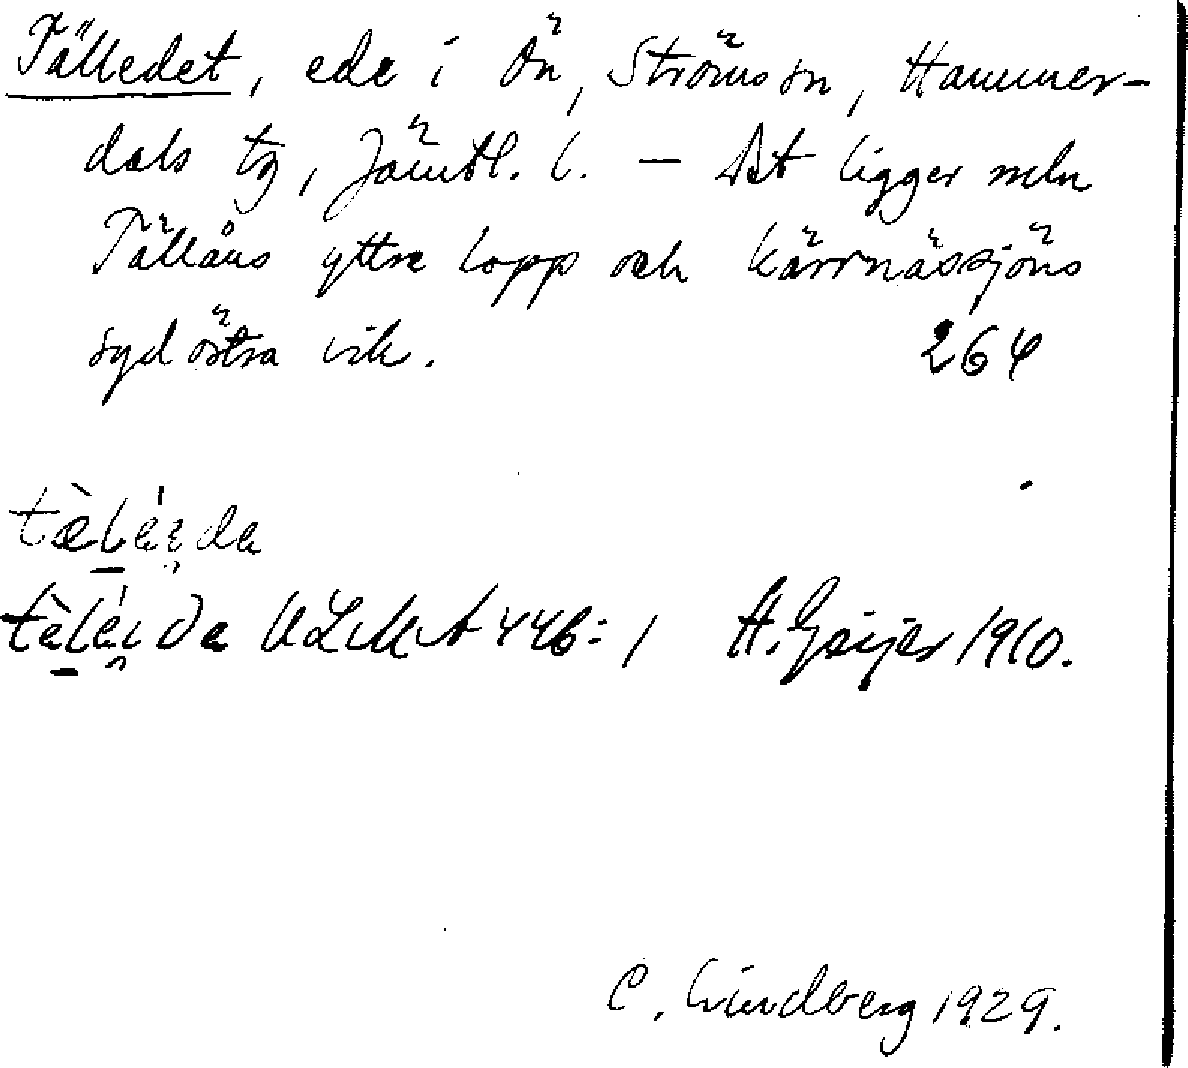 Tälledet, ede i Ön, Ströms sn, Hammer-
dals tg, Jämtl. l. — Det ligger meln
Tällåns yttre lopp och Kärrnässjöns
sydöstra vik. 264
ULMA 446:1 H. Geijer 1910.
C. Lindberg 1929.